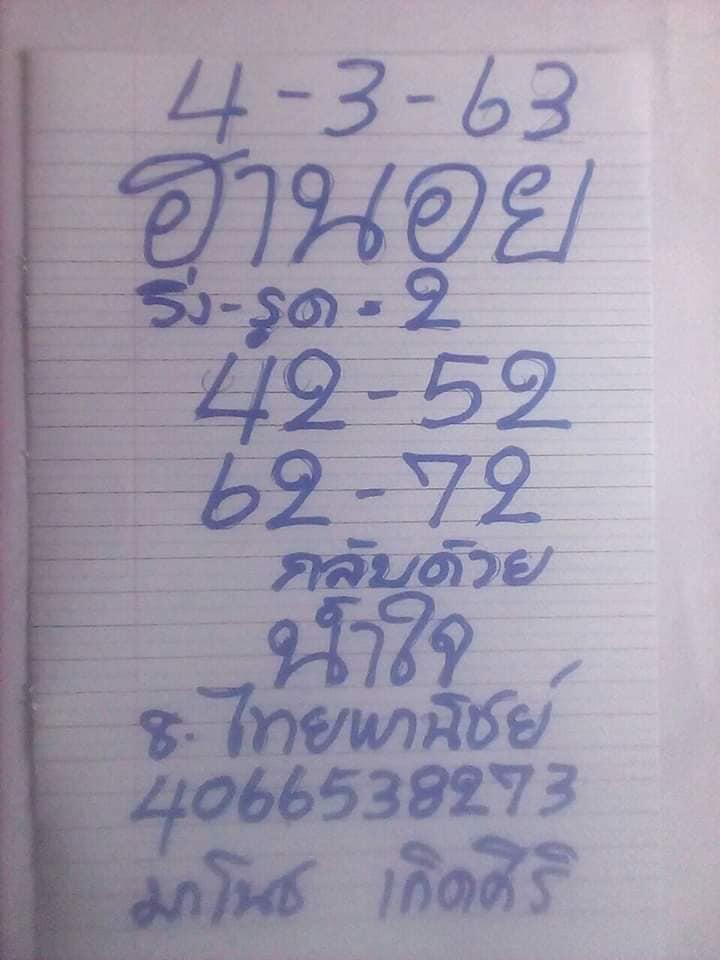 4-3-63
ฮานอย
วิ่ง-รูด-2
42-52
62-72
กลับด้วย
น้ำใจ
ธ.ไทยพานิชย์
4066538273
มาโนช เกิดศิริ